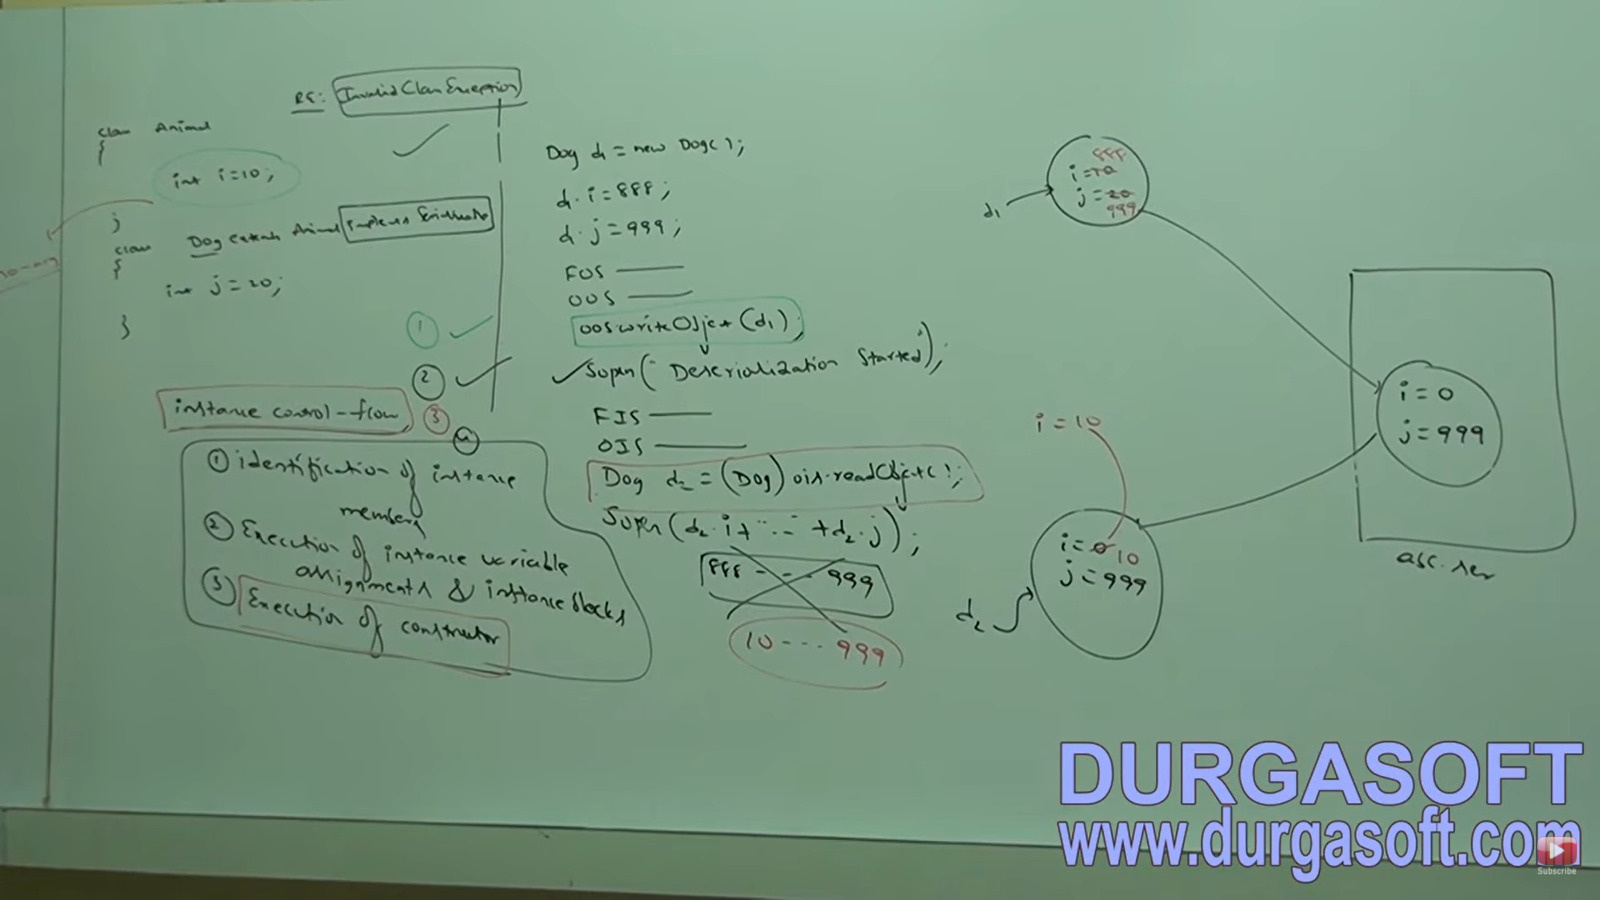 RE: InvalidClassException
class Animal
{
int i=10;
}
class Dog extends Animal implements Serializable
{
int j=20;
}
no-arg
1
2
3
4
instance control-flow
1 identification of instance
members
2 Execution of instance variable
assignments & instance blocks
3 Execution of constructor
Dog d1 = new Dog();
d1.i=888;
d1.j=999;
FOS
OOS
oos.writeObject(d1);
Sopln("Deserialization Started");
FIS
OIS
Dog d2 = (Dog) ois.readObject();
Sopln(d2.i+"..."+d2.j);
888---999
10---999
d1
888
i=10
j=20
999
i=0
j=999
abc.ser
i=10
i=0 10
j=999
d2
DURGASOFT
www.durgasoft.com
Subscribe